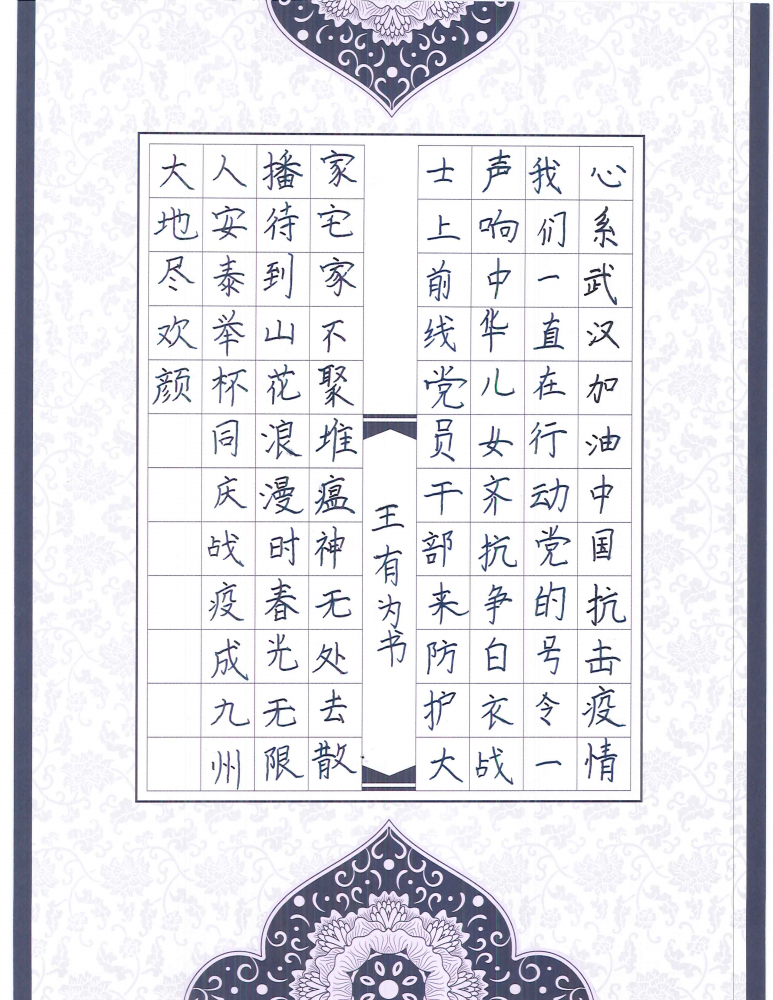 心系武汉加油中国抗击疫情
我们一直在行动党的号令一
声响中华儿女齐抗争白衣战
士上前线党员干部来防护大
家宅家不聚堆瘟神无处去散
播待到山花浪漫时春光无限
人安泰举杯同庆战疫成九州
大地尽欢颜
王有为书